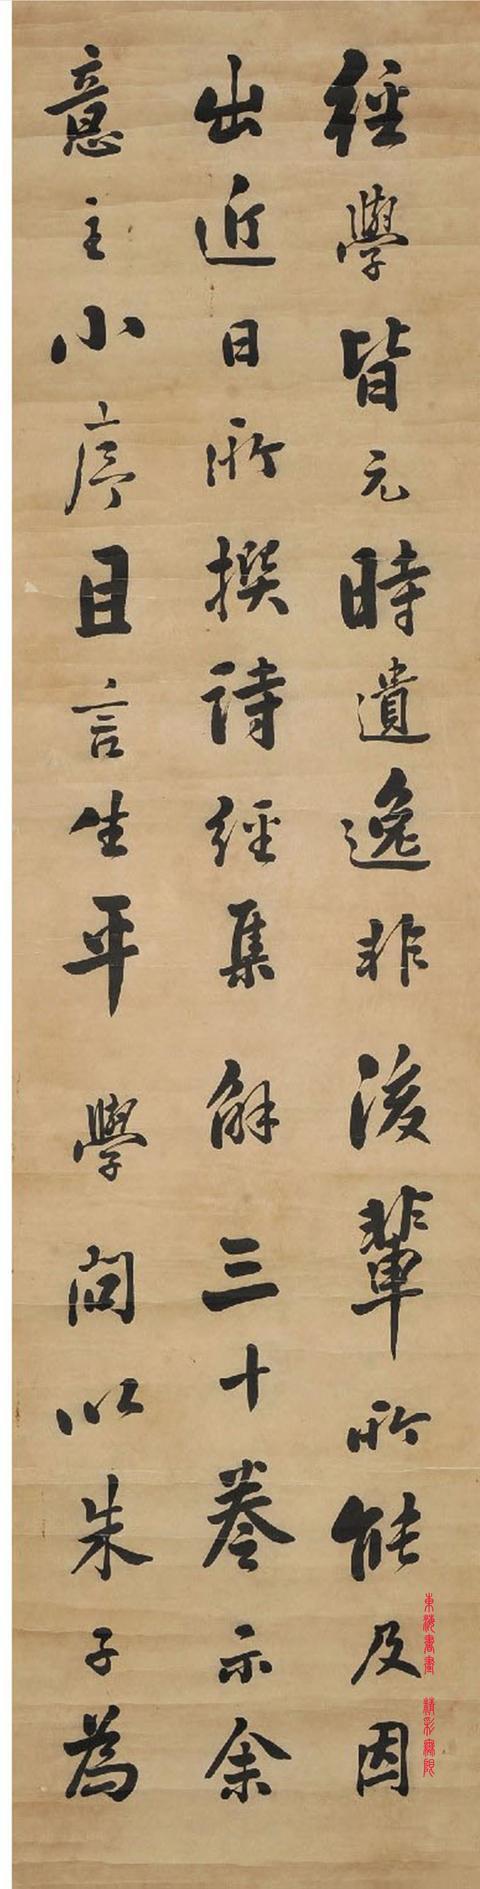 經學皆元時遺逸非後輩所能及因
出近日所撰詩經集解三十卷示余
意主小序且言生平學問以朱子為
東海書畫